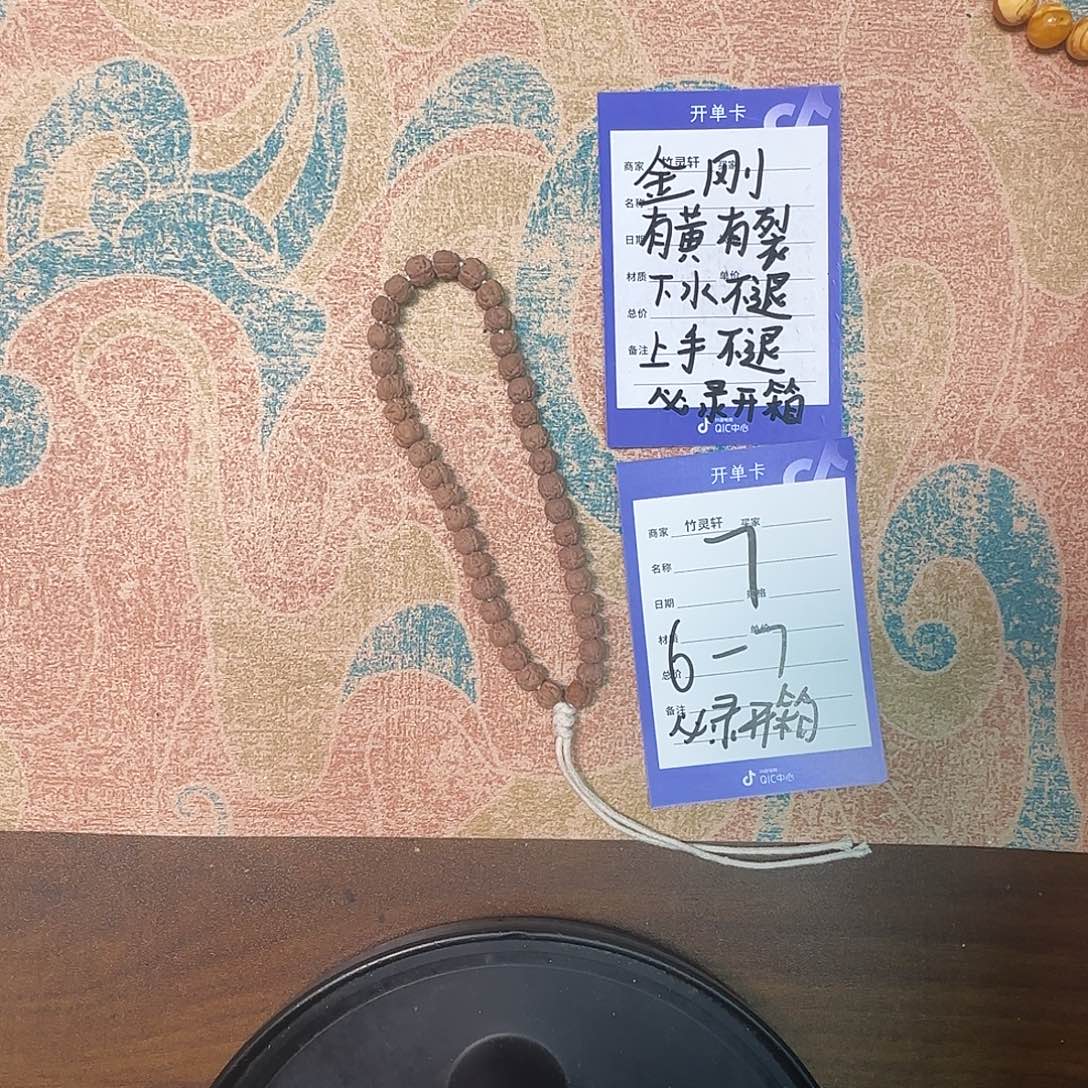 开单卡
商家 竹灵轩
金刚
名称
有黄有裂
日期
材质 单价
下水不退
总价
上手不退
备注
必录开箱
QIC中心
开单卡
商家 竹灵轩 买家
7
名称
日期
材质 单价
6-7
总价
备注
必录开箱
QIC中心